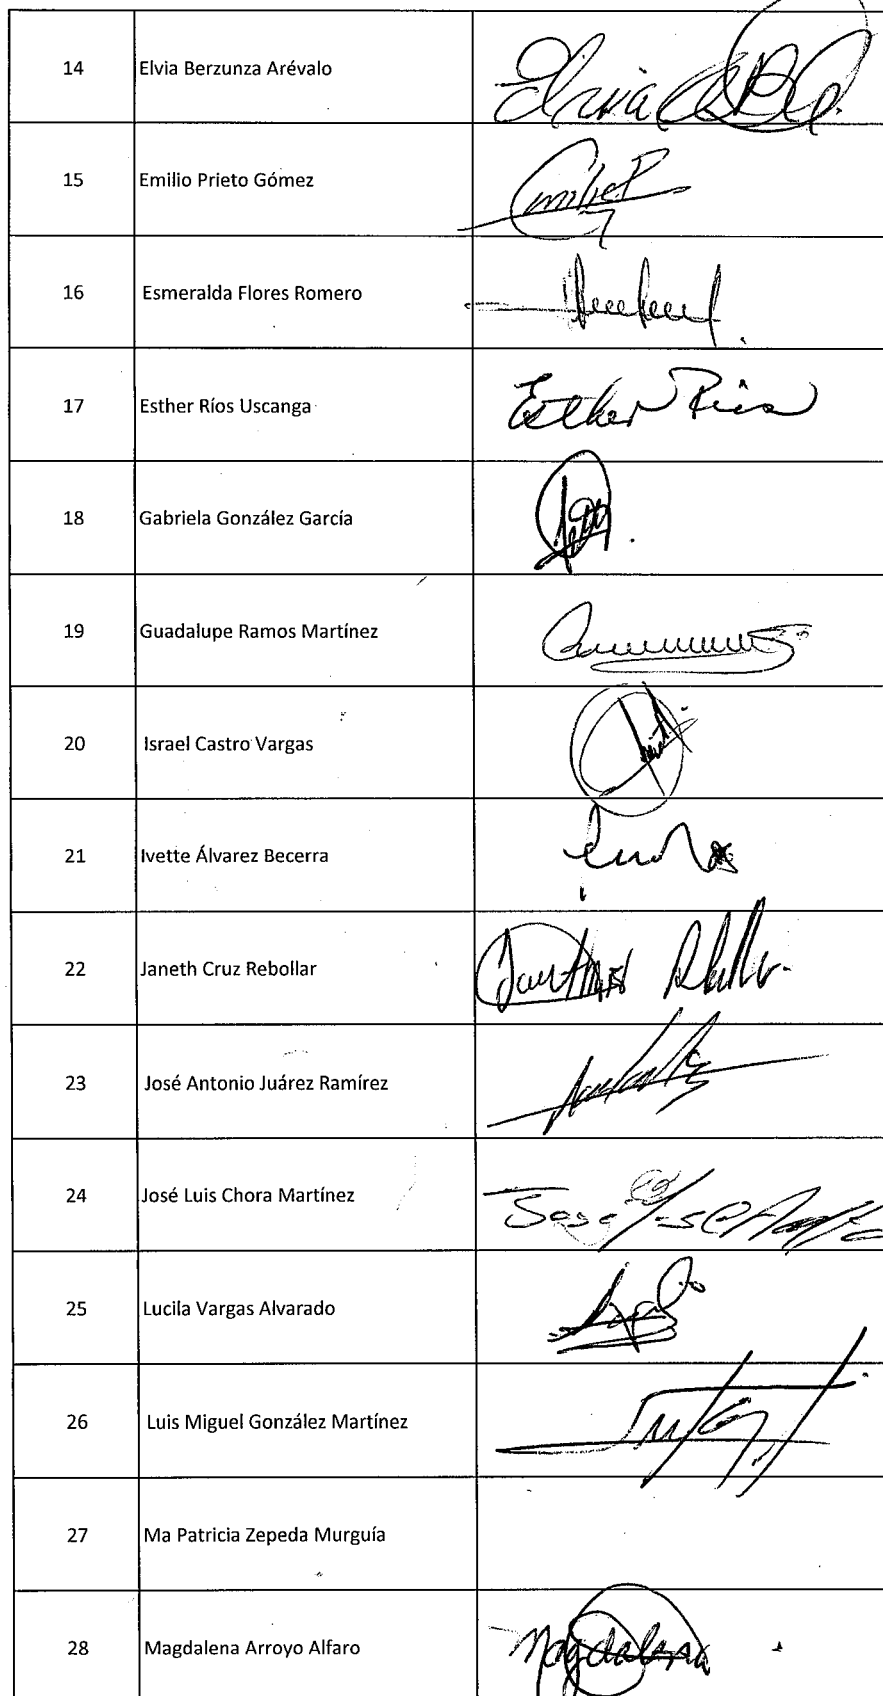 14 Elvia Berzunza Arévalo
15 Emilio Prieto Gómez Emilio P
16 Esmeralda Flores Romero
17 Esther Ríos Uscanga Esther Ríos
18 Gabriela González García
19 Guadalupe Ramos Martínez
20 Israel Castro Vargas
21 Ivette Álvarez Becerra
22 Janeth Cruz Rebollar
23 José Antonio Juárez Ramírez
24 José Luis Chora Martínez
25 Lucila Vargas Alvarado
26 Luis Miguel González Martínez
27 Ma Patricia Zepeda Murguía
28 Magdalena Arroyo Alfaro Magdalena